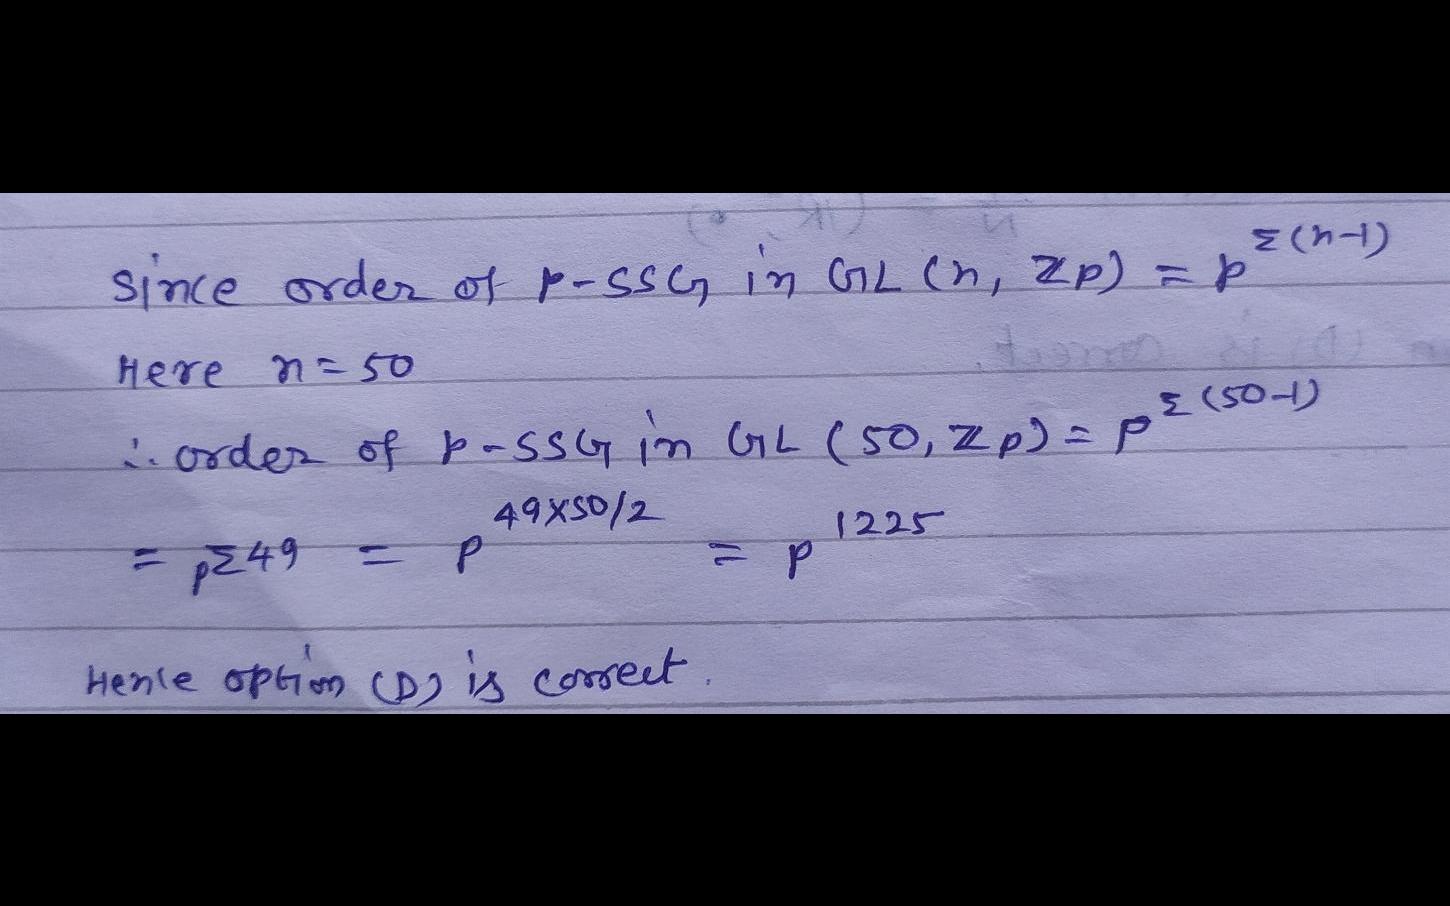 Since order of p-SSG in GL (n, Zp) = p^Σ(n-1)
Here n = 50
∴ order of p-SSG in GL (50, Zp) = p^Σ(50-1)
= pΣ49 = p^49×50/2 = p^1225
Hence option (D) is correct.